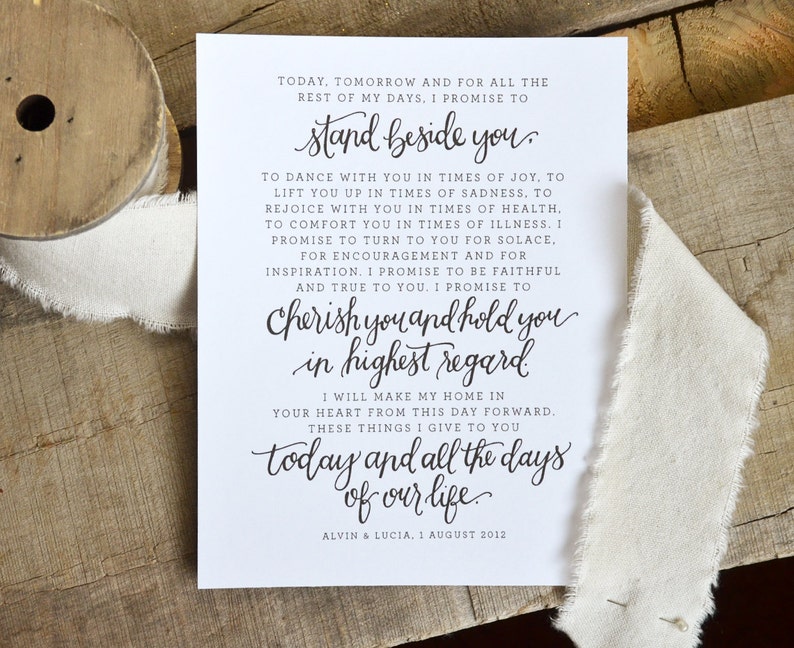 TODAY, TOMORROW AND FOR ALL THE
REST OF MY DAYS, I PROMISE TO
stand beside you,
TO DANCE WITH YOU IN TIMES OF JOY, TO
LIFT YOU UP IN TIMES OF SADNESS, TO
REJOICE WITH YOU IN TIMES OF HEALTH,
TO COMFORT YOU IN TIMES OF ILLNESS. I
PROMISE TO TURN TO YOU FOR SOLACE,
FOR ENCOURAGEMENT AND FOR
INSPIRATION. I PROMISE TO BE FAITHFUL
AND TRUE TO YOU. I PROMISE TO
Cherish you and hold you
in highest regard.
I WILL MAKE MY HOME IN
YOUR HEART FROM THIS DAY FORWARD.
THESE THINGS I GIVE TO YOU
today and all the days
of our life.
ALVIN & LUCIA, 1 AUGUST 2012